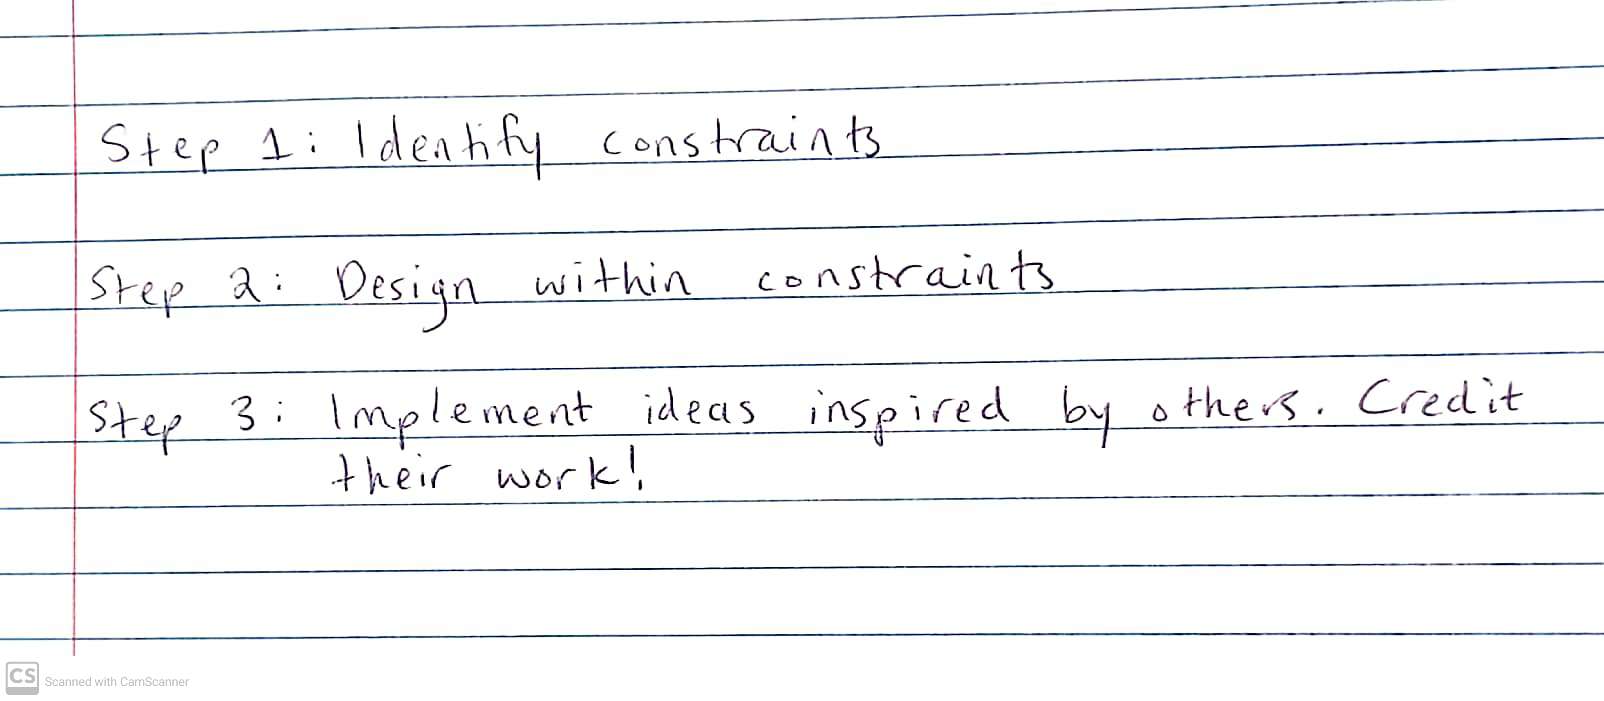 Step 1: Identify constraints
Step 2: Design within constraints
Step 3: Implement ideas inspired by others. Credit
their work!
CS Scanned with CamScanner